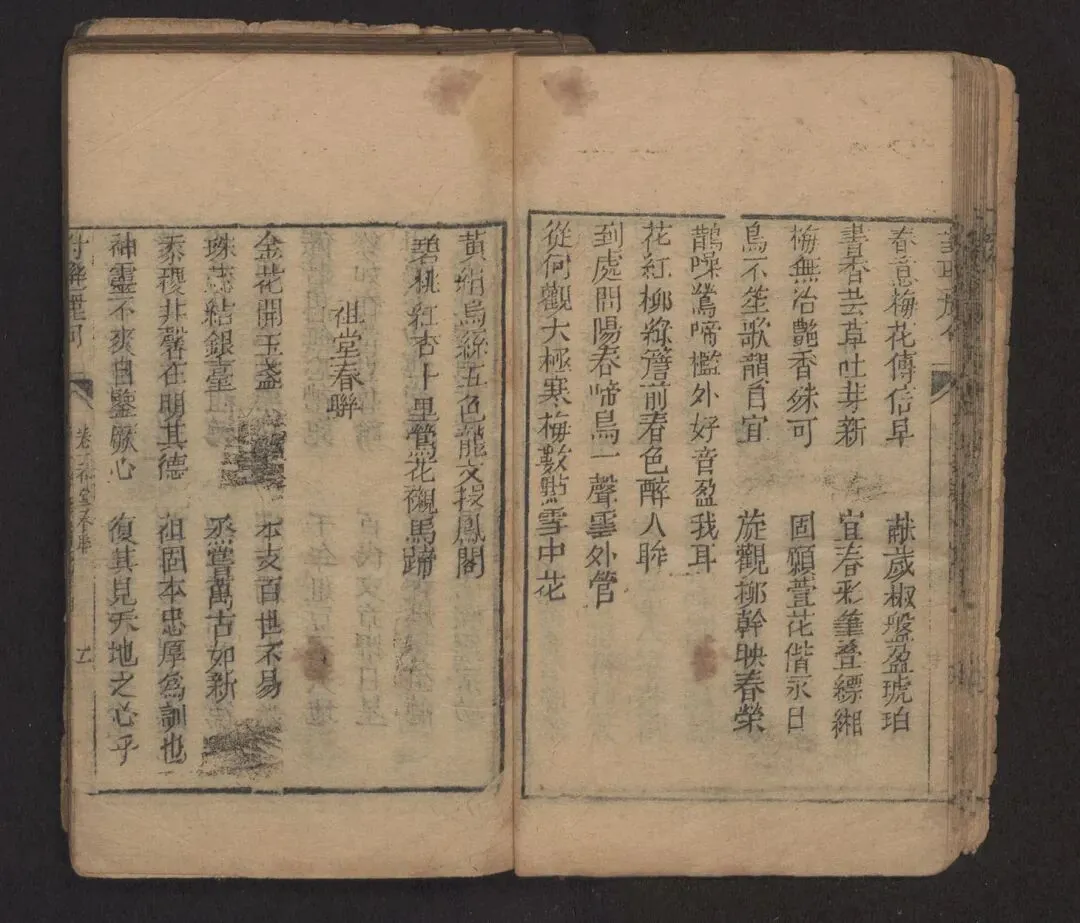 春意梅花傳信早 献歲椒盤盈琥珀
書春芸草吐芽新 宜春彩筆登縹緗
梅無冶艷香殊可 固願萱花偕永日
鳥不笙歌韻自宜 旋觀柳幹映春榮
鵲噪鶯啼檻外好音盈我耳
花紅柳綠簷前春色醉人眸
到處問陽春啼鳥一聲雲外管
從何觀大極寒梅數點雪中花
黃絹烏絲五色龍文扶鳳閣
碧桃紅杏十里鶯花襯馬蹄
祖堂春聯
金花開玉盞 本支百世不易
珠蕊結銀臺 烝嘗萬古如新
黍稷非馨在明其德 祖固本忠厚為訓也
神靈不爽自鑒厥心 復其見天地之心乎